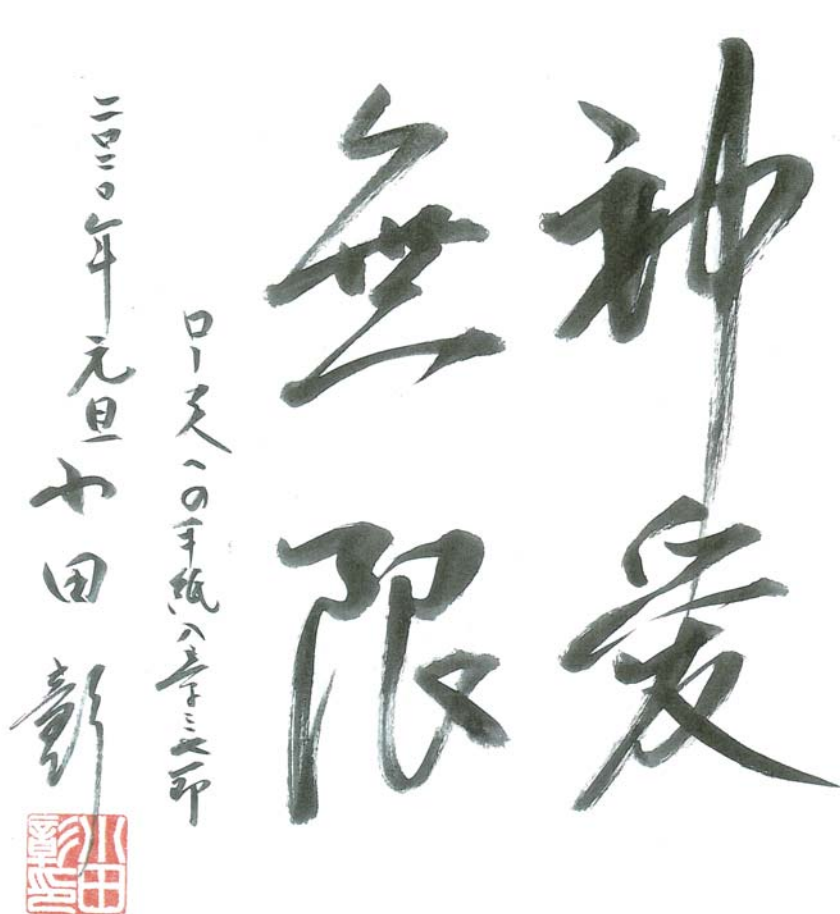 神愛
無限
ローマ人への手紙八章三七節
二〇二〇年元旦 小田彰
小田
彰印